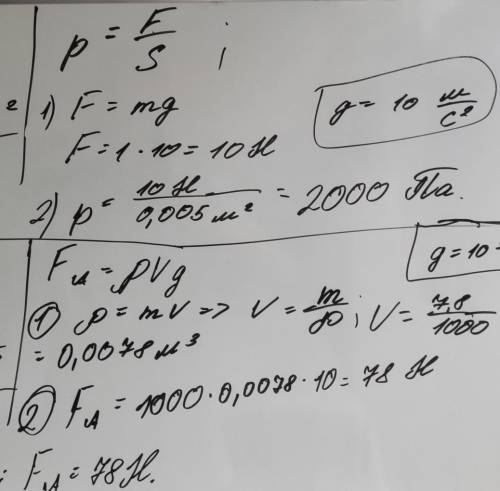 p = F/S ;
2
1) F = mg
g = 10 м/с²
F = 1 · 10 = 10 Н
2) p = 10 Н / 0,005 м² = 2000 Па.
F_A = ρVg
g = 10
① ρ = mV => V = m/ρ ; V = 7,8/1000
= 0,0078 м³
② F_A = 1000 · 0,0078 · 10 = 78 Н
: F_A = 78 Н.